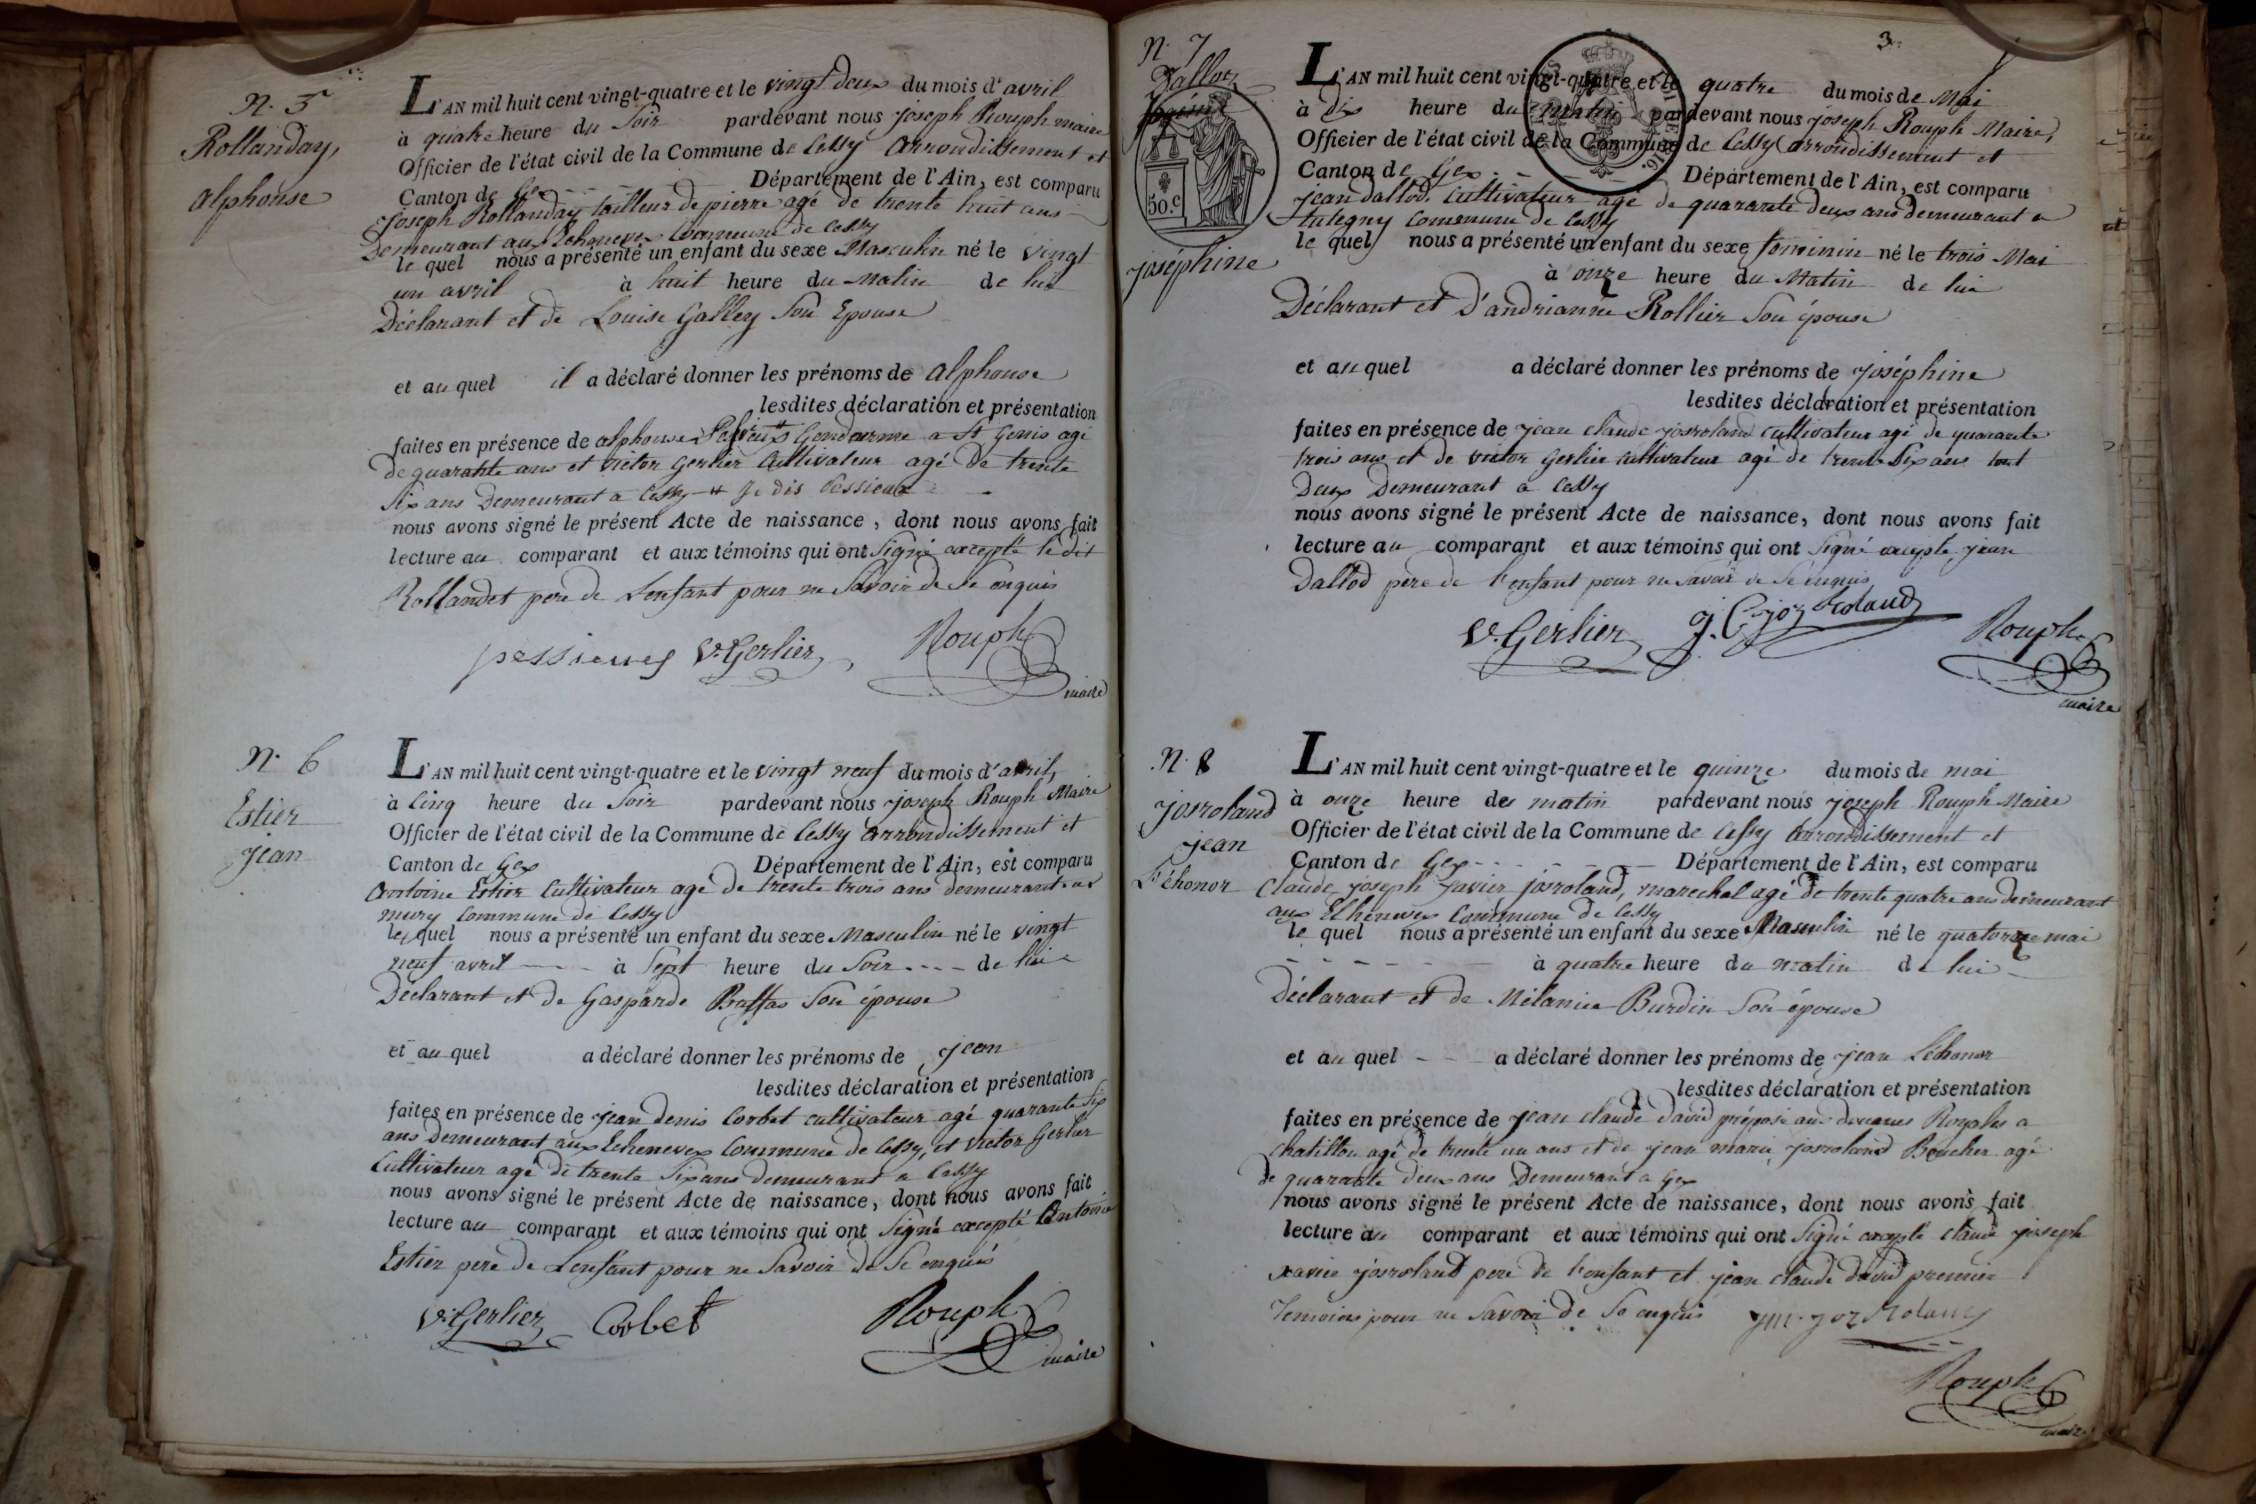 N. 5
Rollanday,
alphonse
L'AN mil huit cent vingt-quatre et le vingt deux du mois d'avril
à quatre heure du Soir pardevant nous joseph Rouph maire
Officier de l'état civil de la Commune de Cessy arrondissement et
Canton de Gex Département de l'Ain, est comparu
joseph Rollanday tailleur de pierre agé de trente huit ans
Demeurant aux Echenevex Commune de Cessy
le quel nous a présenté un enfant du sexe Masculin né le vingt
un avril à huit heure du Matin de lui
Déclarant et de Louise Galley Son Epouse
et au quel il a déclaré donner les prénoms de alphonse
lesdites déclaration et présentation
faites en présence de alphonse Gendarme a St Genis agé
de quarante ans et victor Gerlier Cultivateur agé de trente
Six ans Demeurant a Cessy # Je dis Pessieux
nous avons signé le présent Acte de naissance, dont nous avons fait
lecture au comparant et aux témoins qui ont Signé excepté le dit
Rollandet pere de Lenfant pour ne Savoir de Se enquis
pessieux V. Gerlier Rouph
maire
N. 6
Estier
jean
L'AN mil huit cent vingt-quatre et le vingt neuf du mois d'avril,
à Cinq heure du Soir pardevant nous joseph Rouph Maire
Officier de l'état civil de la Commune de Cessy arrondissement et
Canton de Gex Département de l'Ain, est comparu
Antoine Estier Cultivateur agé de trente trois ans demeurant a
mury Commune de Cessy
le quel nous a présenté un enfant du sexe Masculin né le vingt
neuf avril à Sept heure du Soir de lui
Déclarant et de Gasparde Son épouse
et au quel a déclaré donner les prénoms de jean
lesdites déclaration et présentation
faites en présence de jean denis Corbet cultivateur agé quarante Six
ans Demeurant aux Echenevex Commune de Cessy, et victor Gerlier
Cultivateur agé de trente Six ans demeurant a Cessy
nous avons signé le présent Acte de naissance, dont nous avons fait
lecture au comparant et aux témoins qui ont Signé excepté Antoine
Estier pere de Lenfant pour ne Savoir de Se enquis
V. Gerlier Corbet Rouph
maire
3
N. 7
Dallod
50.c
joséphine
L'AN mil huit cent vingt-quatre et le quatre du mois de Mai
à dix heure du matin pardevant nous joseph Rouph Maire,
Officier de l'état civil de la Commune de Cessy arrondissement et
Canton de Gex Département de l'Ain, est comparu
jean dallod, Cultivateur agé de quarante deux ans demeurant a
tutegny Commune de Cessy
le quel nous a présenté un enfant du sexe feminin né le trois Mai
à onze heure du Matin de lui
Déclarant et D'andrianne Rollier Son épouse
et au quel a déclaré donner les prénoms de joséphine
lesdites déclaration et présentation
faites en présence de jean claude josroland Cultivateur agé de quarante
trois ans et de victor Gerlier cultivateur agé de trente Six ans tout
Deux Demeurant a Cessy
nous avons signé le présent Acte de naissance, dont nous avons fait
lecture au comparant et aux témoins qui ont Signé excepté jean
Dallod père de l'enfant pour ne Savoir de Se enquis
V. Gerlier j. C. joz Roland Rouph
maire
N. 8
josroland
jean
Léhonor
L'AN mil huit cent vingt-quatre et le quinze du mois de mai
à onze heure du matin pardevant nous joseph Rouph Maire
Officier de l'état civil de la Commune de Cessy arrondissement et
Canton de Gex Département de l'Ain, est comparu
Claude joseph Xavier josroland, marechal agé de trente quatre ans demeurant
aux Echenevex Commune de Cessy
le quel nous a présenté un enfant du sexe Masculin né le quatorze mai
à quatre heure du matin de lui
Déclarant et de Mélanie Burdin Son épouse
et au quel a déclaré donner les prénoms de jean Léhonor
lesdites déclaration et présentation
faites en présence de jean claude david préposé aux douanes Royales a
Chatillon agé de trente un ans et de jean marie josroland Boucher agé
de quarante deux ans Demeurant a Gex
nous avons signé le présent Acte de naissance, dont nous avons fait
lecture au comparant et aux témoins qui ont Signé excepté claude joseph
xavier josroland pere de l'enfant et jean claude david premier
Temoins pour ne Savoir de Se enquis jm. joz Roland
Rouph
maire